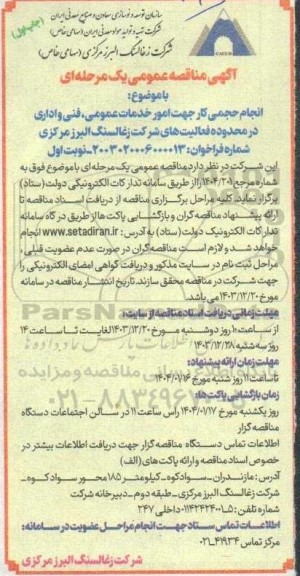 سازمان توسعه و نوسازی معادن و صنایع معدنی ایران
شرکت تهیه و تولید مواد معدنی ایران (سهامی خاص)
شرکت زغالسنگ البرز مرکزی (سهامی خاص)
چاپ اول
آگهی مناقصه عمومی یک مرحله‌ای
با موضوع:
انجام حجمی کار جهت امور خدمات عمومی، فنی و اداری
در محدوده فعالیت‌های شرکت زغالسنگ البرز مرکزی
شماره فراخوان: ۲۰۰۳۰۲۰۰۰۶۰۰۰۰۱۳-نوبت اول
این شرکت در نظر دارد مناقصه عمومی یک مرحله ای با موضوع فوق به
شماره مرجع ۱۴۰۴/۲۰۱ را از طریق سامانه تدارکات الکترونیکی دولت (ستاد)
برگزار نماید. کلیه مراحل برگزاری مناقصه از دریافت اسناد مناقصه تا
ارائه پیشنهاد مناقصه گران و بازگشایی پاکت ها از طریق درگاه سامانه
تدارکات الکترونیک دولت (ستاد) به آدرس: www.setadiran.ir انجام
خواهد شد و لازم است مناقصه گران در صورت عدم عضویت قبلی
مراحل ثبت نام در سایت مذکور و دریافت گواهی امضای الکترونیکی را
جهت شرکت در مناقصه محقق سازند. تاریخ انتشار مناقصه در سامانه
مورخ ۱۴۰۳/۱۲/۲۰ می باشد.
مهلت زمانی دریافت اسناد مناقصه از سایت:
از ساعت ۱۰ روز دوشنبه مورخ ۱۴۰۳/۱۲/۲۰ لغایت تا ساعت ۱۴
روز سه شنبه ۱۴۰۳/۱۲/۲۸
مهلت زمان ارائه پیشنهاد:
تا ساعت ۱۱ روز شنبه مورخ ۱۴۰۴/۰۱/۱۶
زمان بازگشایی پاکت‌ها:
روز یکشنبه مورخ ۱۴۰۴/۰۱/۱۷ راس ساعت ۱۱ در سالن اجتماعات دستگاه
مناقصه گزار
اطلاعات تماس دستگاه مناقصه گزار جهت دریافت اطلاعات بیشتر در
خصوص اسناد مناقصه و ارائه پاکت های (الف)
آدرس: مازندران-سوادکوه-کیلومتر ۱۸۵ محور سوادکوه-
شرکت زغالسنگ البرز مرکزی-طبقه دوم-دبیرخانه شرکت
شماره تلفن: ۵-۰۱۱۴۲۴۲۴۰۰۱ داخلی ۲۴۷
اطلاعات تماس ستاد جهت انجام مراحل عضویت در سامانه:
مرکز تماس ۴۱۹۳۴-۰۲۱
شرکت زغالسنگ البرز مرکزی